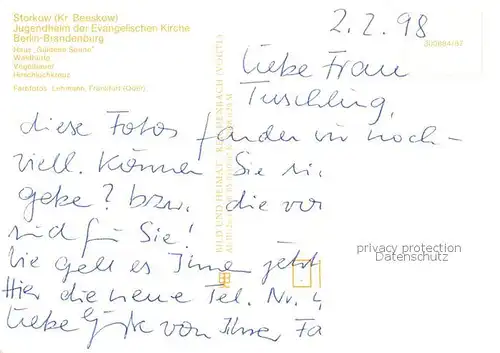 Storkow (Kr. Beeskow)
Jugendheim der Evangelischen Kirche
Berlin-Brandenburg
Haus „Guldene Sonne“
Waldhütte
Vogelbauer
Hirschluchkreuz
Farbfotos: Lehmann, Frankfurt (Oder)
2.2.98
Liebe Frau
Tuschling,
diese Fotos fanden wir noch-
viell. können Sie
gebe? bzw. die vor
sind für Sie!
Wie geht es Ihnen jetzt
Hier die neue Tel. Nr. 4
Liebe Grüße von Ihrer Fa
BILD UND HEIMAT REICHENBACH (VOGTL)
privacy protection
Datenschutz